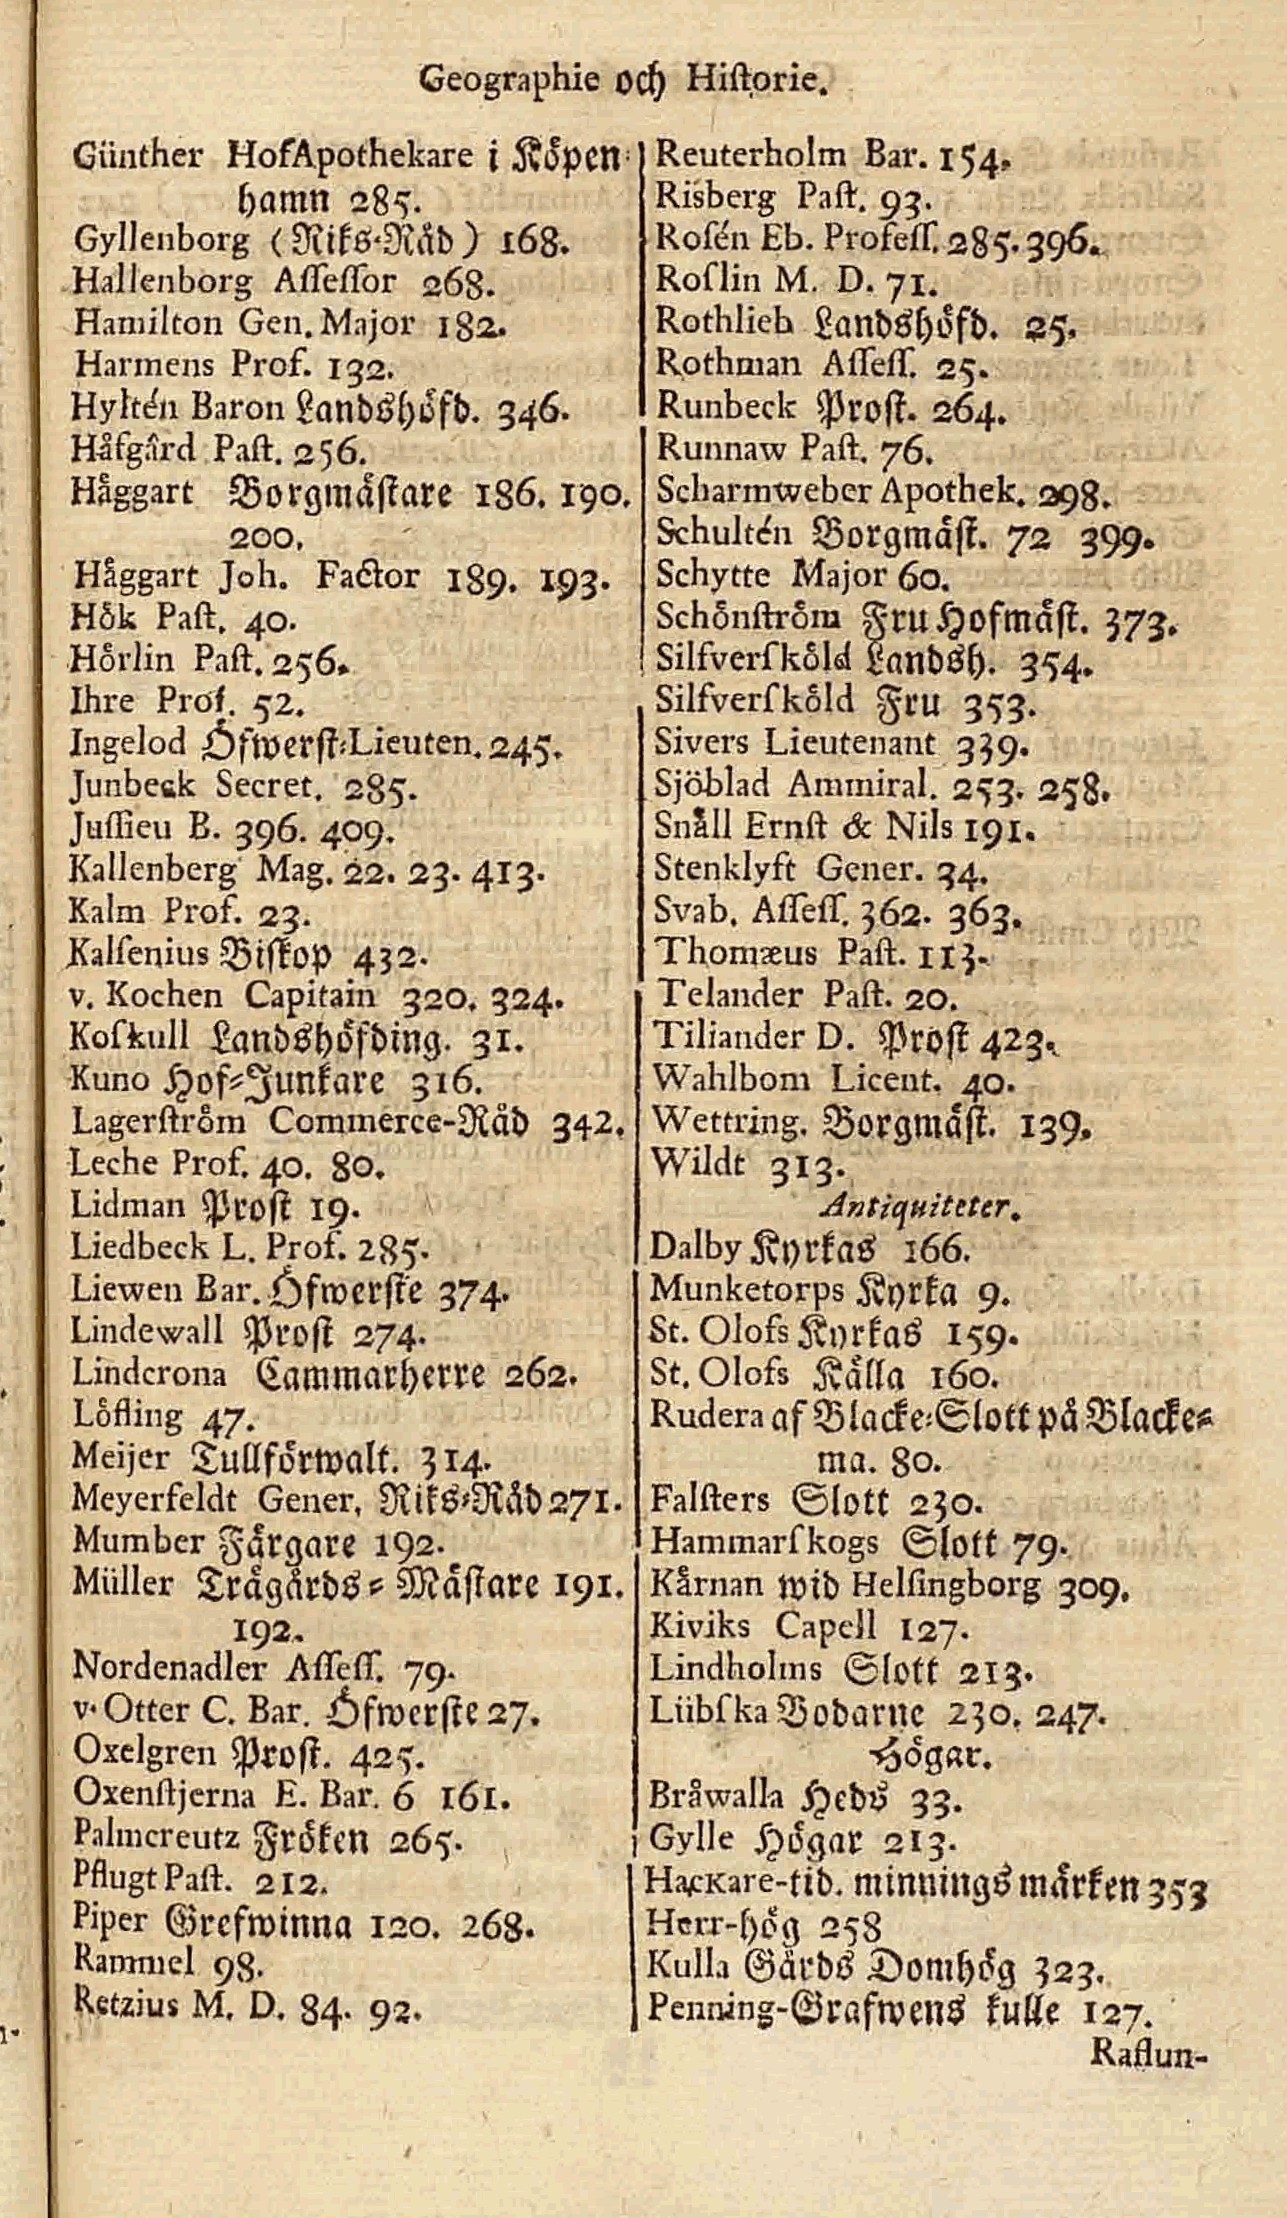 Geographie och Historie.
Günther HofApothekare i Köpen-
hamn 285.
Gyllenborg (Riks-Råd) 168.
Hallenborg Assessor 268.
Hamilton Gen. Major 182.
Harmens Prof. 132.
Hyltén Baron Landshöfd. 346.
Håfgård Past. 256.
Häggart Borgmästare 186. 190.
200.
Häggart Joh. Factor 189. 193.
Hök Past. 40.
Hörlin Past. 256.
Ihre Prof. 52.
Ingelod Öfwerst-Lieuten. 245.
Junbeck Secret. 285.
Jussieu B. 396. 409.
Kallenberg Mag. 22. 23. 413.
Kalm Prof. 23.
Kalsenius Biskop 432.
v. Kochen Capitain 320. 324.
Koskull Landshöfding. 31.
Kuno Hof-Junkare 316.
Lagerström Commerce-Råd 342.
Leche Prof. 40. 80.
Lidman Prost 19.
Liedbeck L. Prof. 285.
Liewen Bar. Öfwerste 374.
Lindewall Prost 274.
Lindcrona Cammarherre 262.
Löfling 47.
Meijer Tullförwalt. 314.
Meyerfeldt Gener. Riks-Råd 271.
Mumber Färgare 192.
Müller Trägårds-Mästare 191.
192.
Nordenadler Assess. 79.
v. Otter C. Bar. Öfwerste 27.
Oxelgren Prost. 425.
Oxenstjerna E. Bar. 6 161.
Palmcreutz Fröken 265.
Pflugt Past. 212.
Piper Grefwinna 120. 268.
Rammel 98.
Retzius M. D. 84. 92.
Reuterholm Bar. 154.
Risberg Past. 93.
Rosén Eb. Profess. 285. 396.
Roslin M. D. 71.
Rothlieb Landshöfd. 25.
Rothman Assess. 25.
Runbeck Prost. 264.
Runnaw Past. 76.
Scharmweber Apothek. 298.
Schultén Borgmäst. 72 399.
Schytte Major 60.
Schönström Fru Hofmäst. 373.
Silfversköld Landsh. 354.
Silfversköld Fru 353.
Sivers Lieutenant 339.
Sjöblad Ammiral. 253. 258.
Snäll Ernst & Nils 191.
Stenklyft Gener. 34.
Svab. Assess. 362. 363.
Thomæus Past. 113.
Telander Past. 20.
Tiliander D. Prost 423.
Wahlbom Licent. 40.
Wettring. Borgmäst. 139.
Wildt 313.
Antiquiteter.
Dalby Kyrkas 166.
Munketorps Kyrka 9.
St. Olofs Kyrkas 159.
St. Olofs Källa 160.
Rudera af Blacke-Slott på Blacke-
ma. 80.
Falsters Slott 230.
Hammarskogs Slott 79.
Kärnan wid Helsingborg 309.
Kiviks Capell 127.
Lindholms Slott 213.
Lübska Bodarne 230. 247.
Högar.
Bråwalla Heds 33.
Gylle Högar 213.
Hackare-tid. minnings märken 353
Herr-hög 258
Kulla Gärds Domhög 323.
Penning-Grafwens kulle 127.
Raflun-